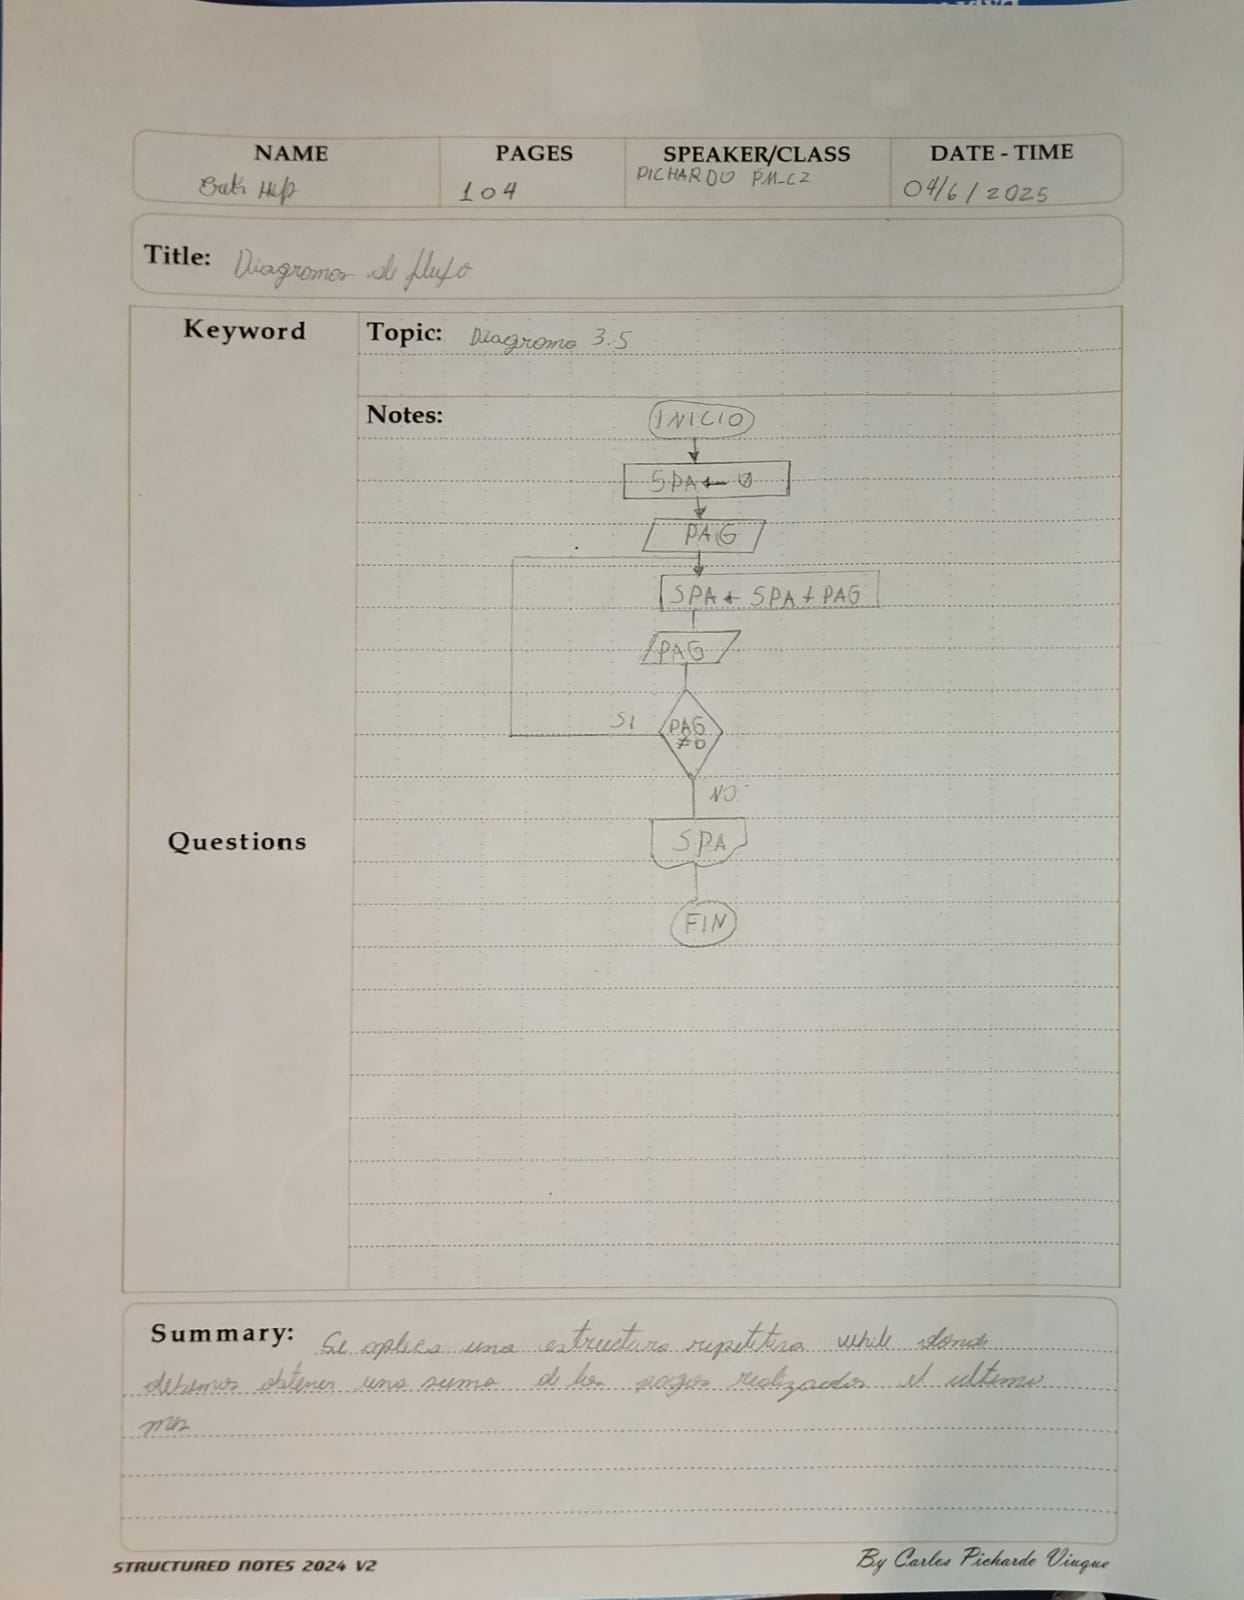 NAME PAGES SPEAKER/CLASS DATE - TIME
104 PICHARDO PM-C2 04/6/2025
Title: Diagramas de flujo
Keyword Topic: Diagrama 3.5
Notes:
INICIO
SPA ← 0
PAG
SPA ← SPA + PAG
PAG
SI
PAG
≠0
NO
Questions
SPA
FIN
Summary: Se aplica una estructura repetitiva while donde
debemos obtener una suma de los pagos realizados el ultimo
mes
STRUCTURED NOTES 2024 V2 By Carlos Pichardo Viuque